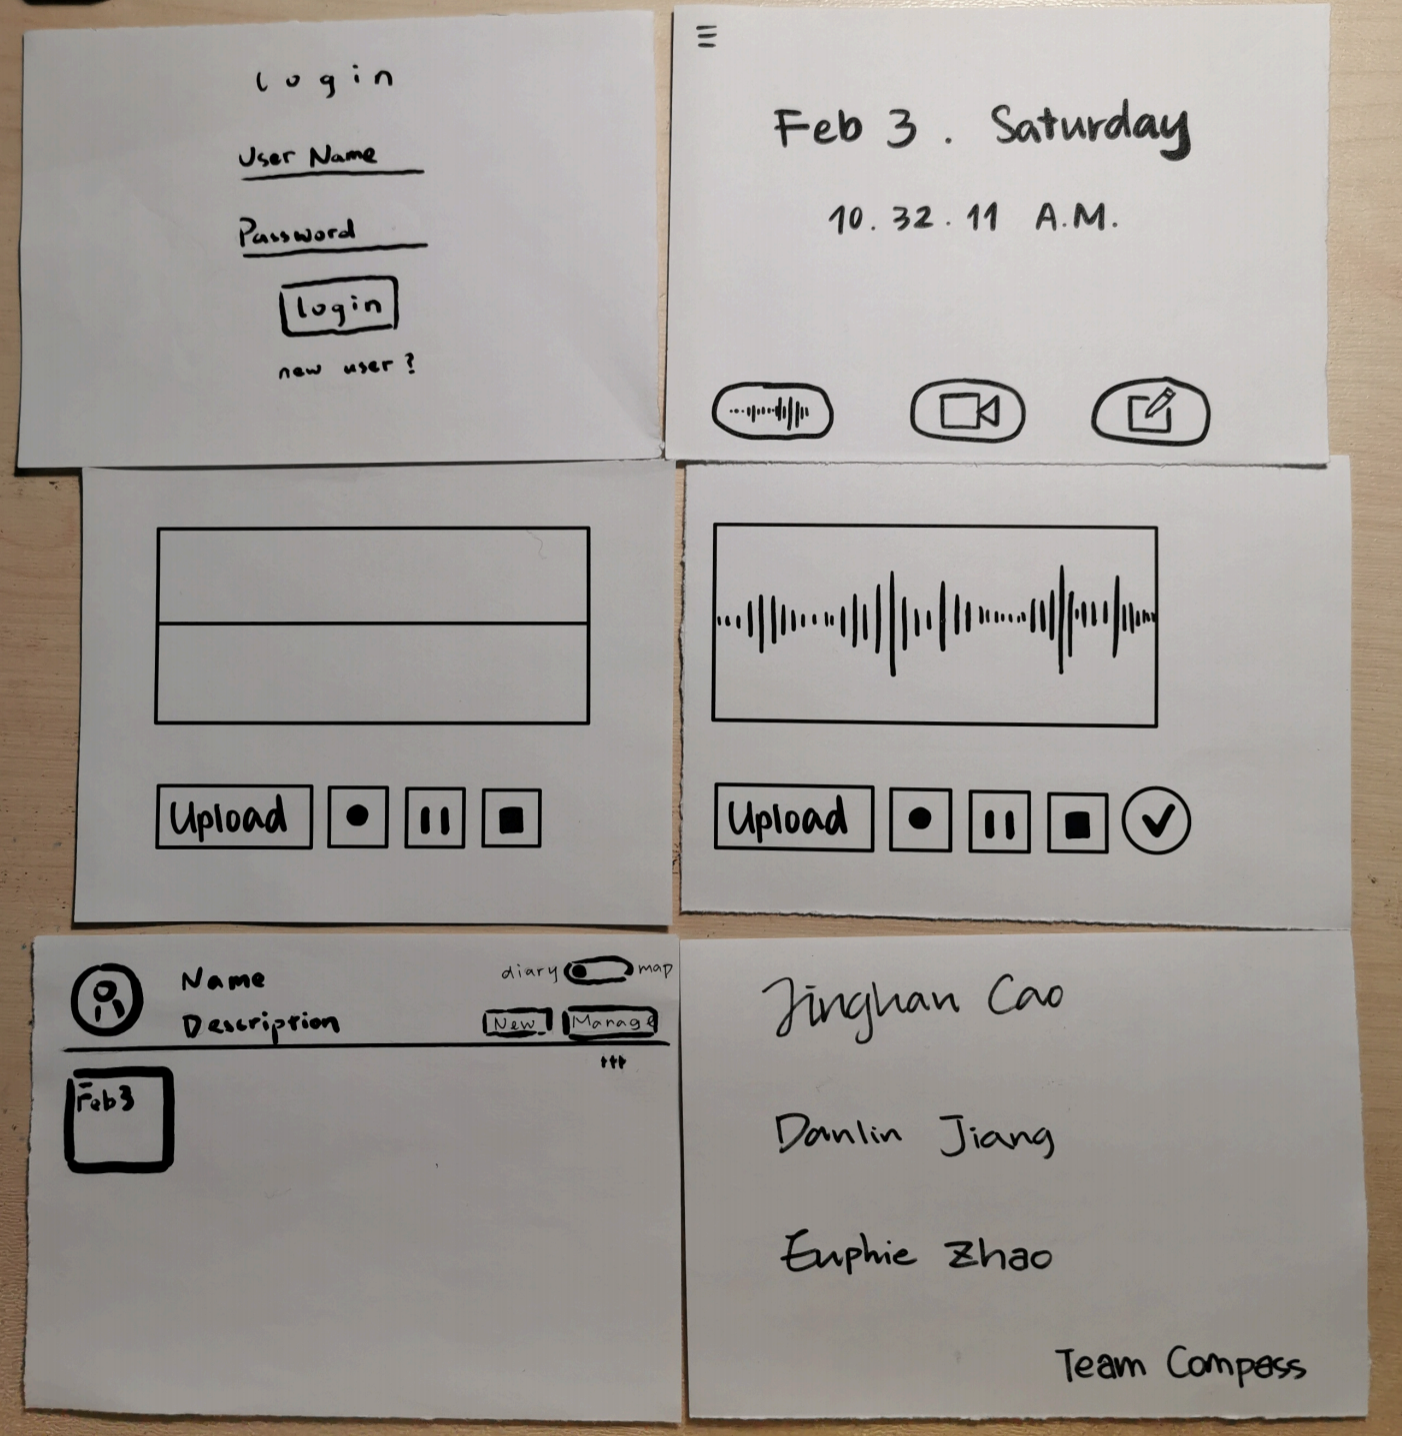 login
User Name
Password
login
new user?
Feb 3. Saturday
10.32.11 A.M.
Upload
Upload
Name
Description
diary map
New Manage
Feb 3
Jinghan Cao
Danlin Jiang
Euphie Zhao
Team Compass